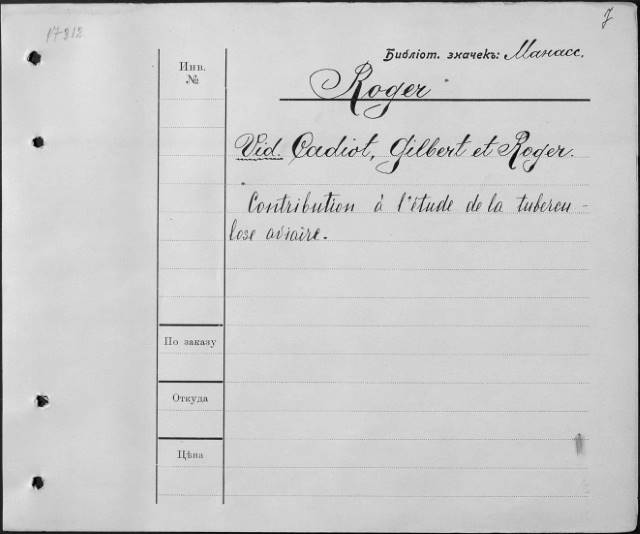 17212
Библіот. значекъ: Манасс.
Инв.
№
Roger
Vid. Cadiot, Gilbert et Roger.
Contribution à l'étude de la tubercu-
lose aviaire.
По заказу
Откуда
Цѣна